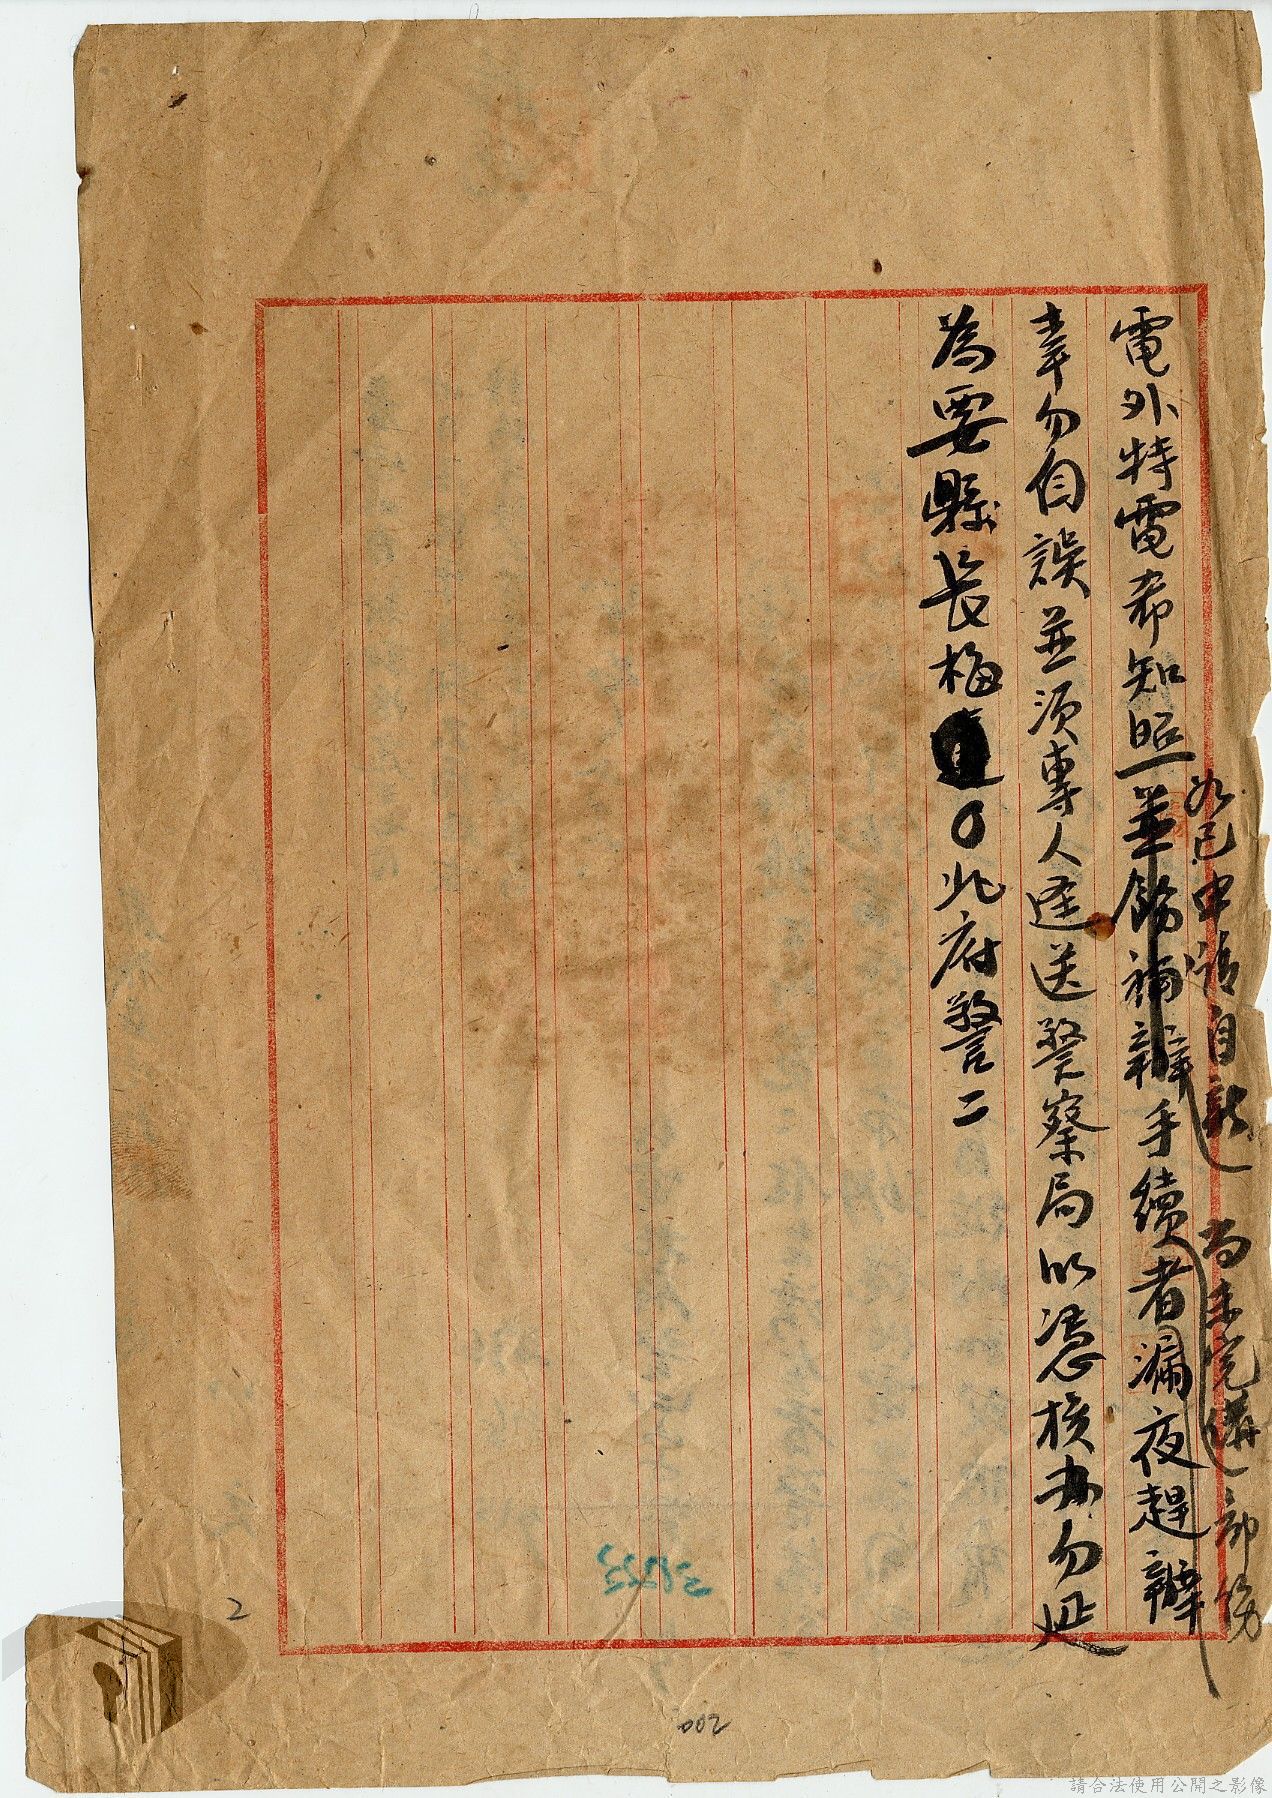 電外特電希知照並飭補辦手續者漏夜趕辦
如已申請自新
尚未完備
部份
幸勿自誤並須專人逕送警察局以憑核办勿延
為要縣長梅
北府警二
2
002
請合法使用公開之影像